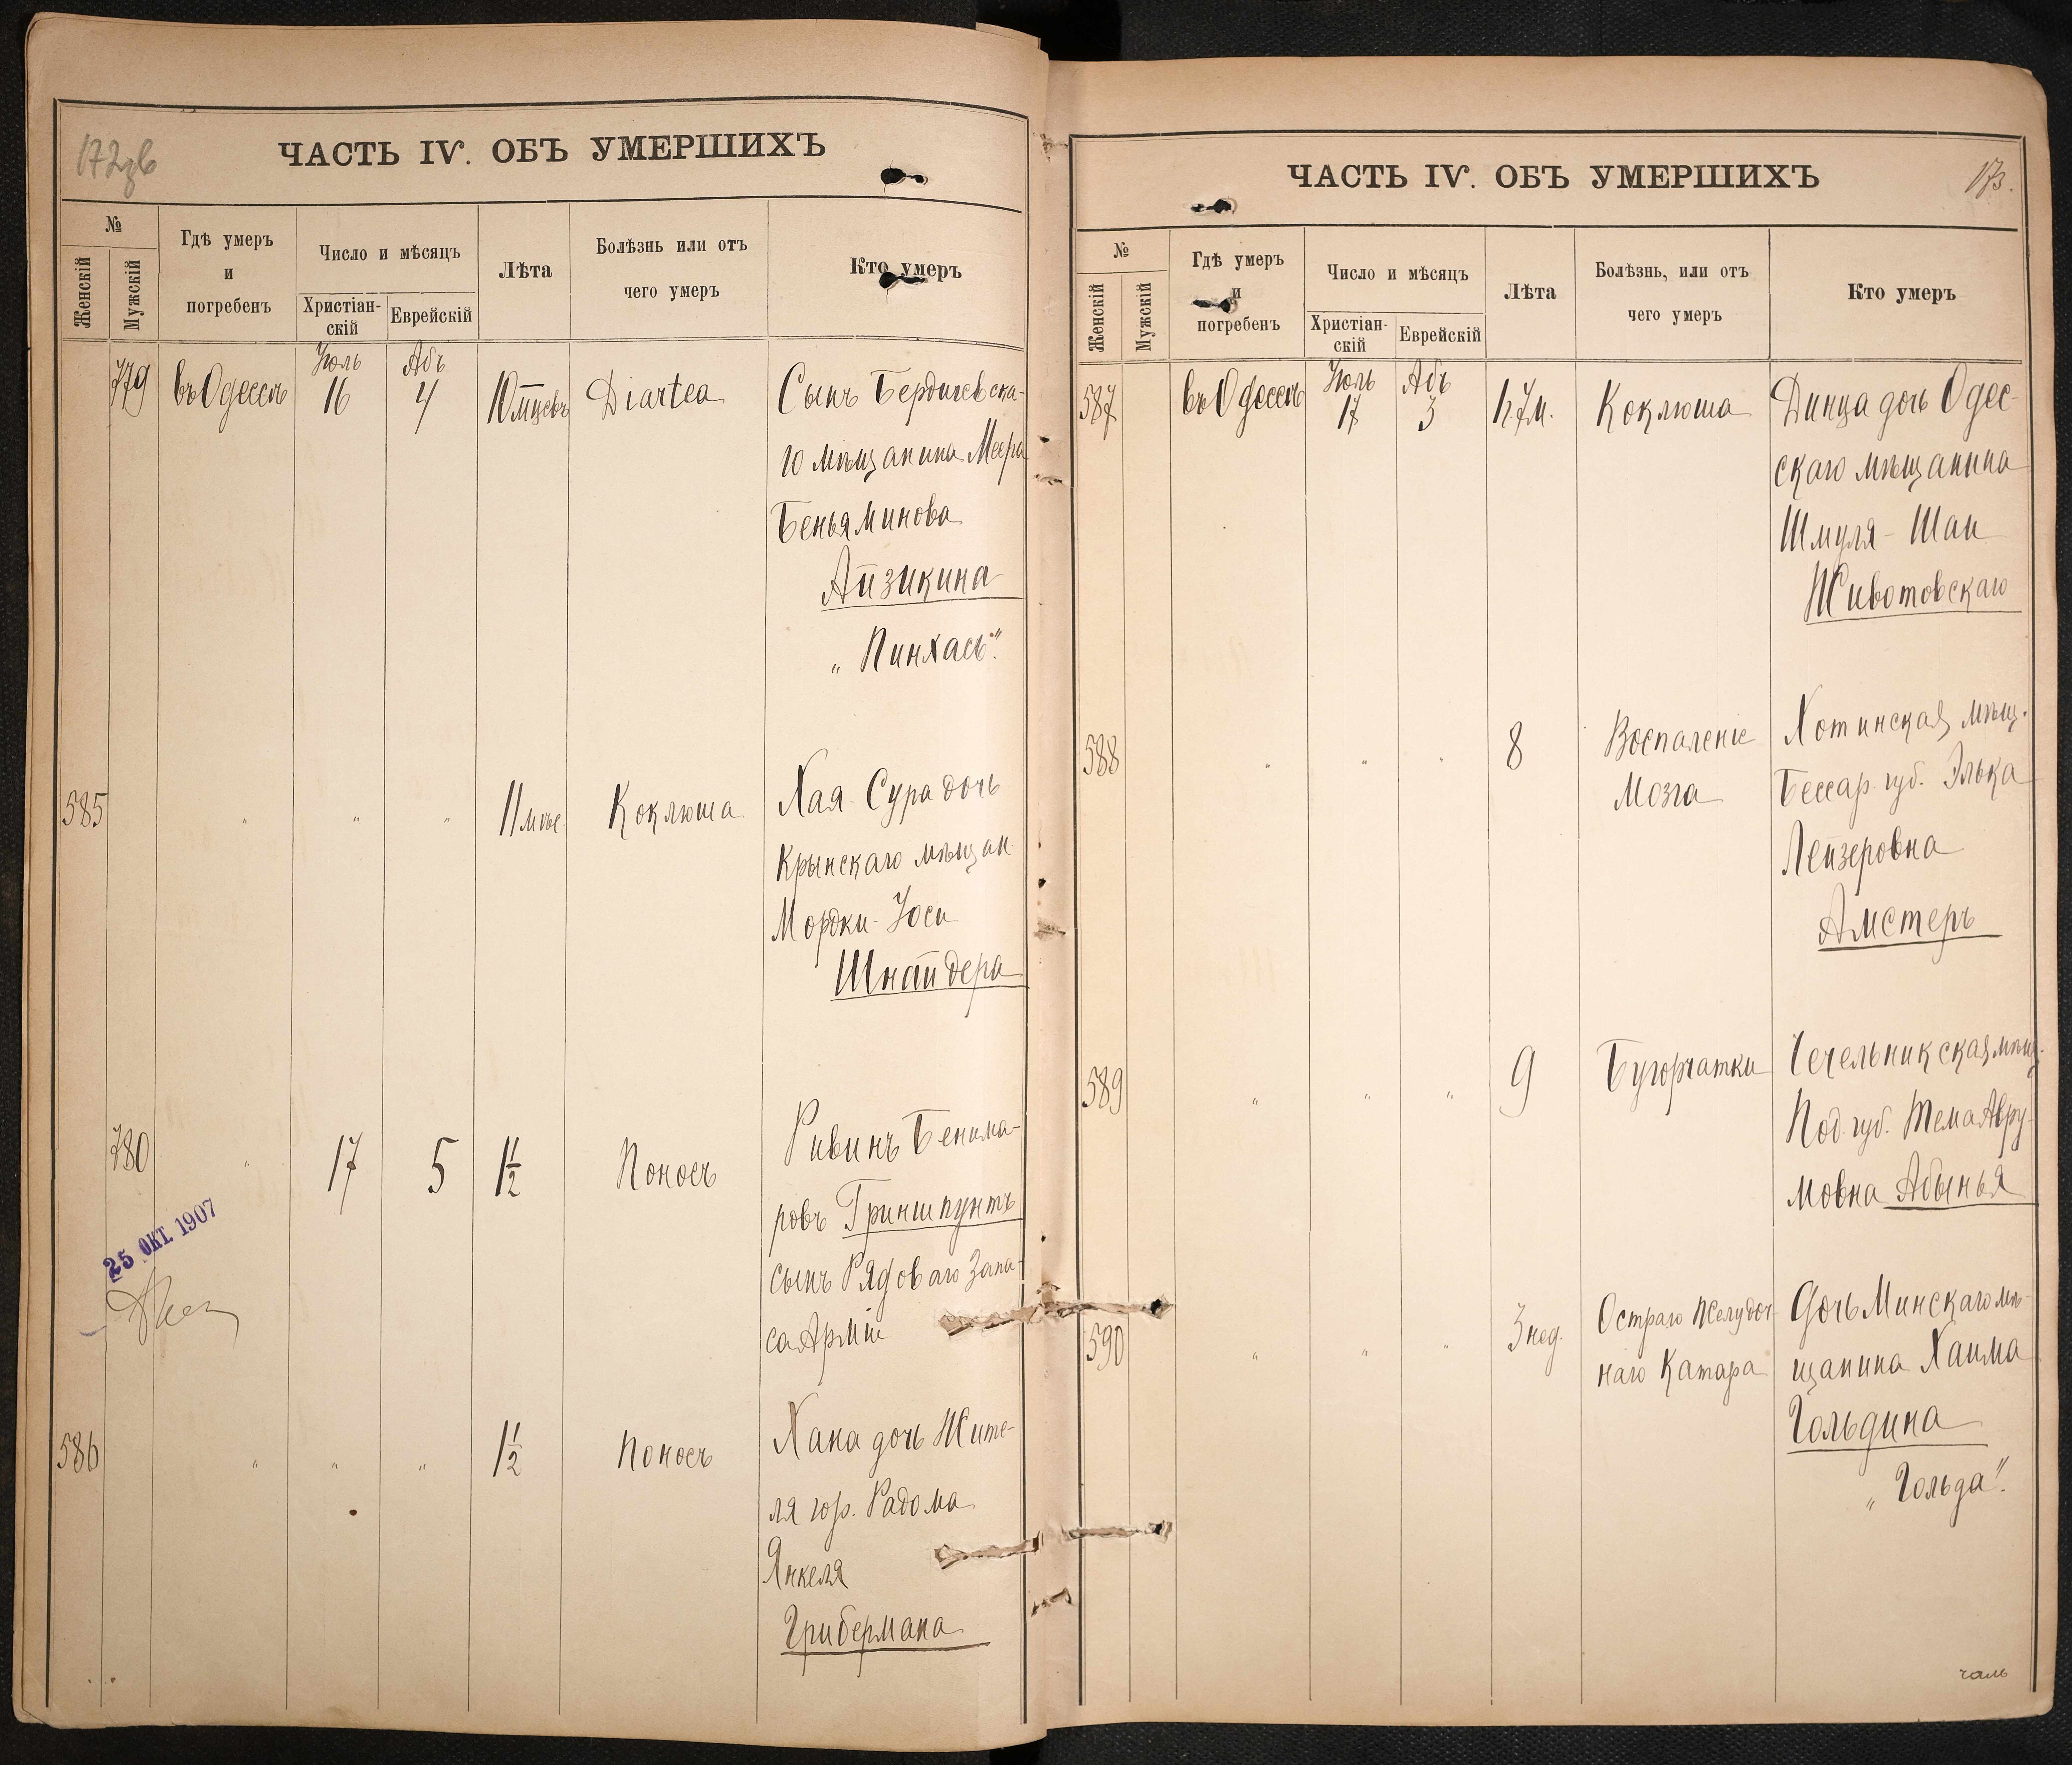 172 об
ЧАСТЬ IV. ОБЪ УМЕРШИХЪ
№
Женскій
Мужскій
Гдѣ умеръ
и
погребенъ
Число и мѣсяцъ
Христіан-
скій
Еврейскій
Лѣта
Болѣзнь или отъ
чего умеръ
Кто умеръ
Іюль Абъ
779 въ Одессѣ 16 4 10 мцевъ Diartea Сынъ Бердичевска-
го мѣщанина Меера
Беньяминова
Айзикина
„Пинхасъ".
585 " " " 11 мѣс. Коклюша Хая-Сура дочь
Крынскаго мѣщан.
Мордки-Іоси
Шнайдера
780 " 17 5 1½ Поносъ Ривинъ Бенима-
ровъ Гриншпунтъ
сынъ Рядоваго Запа-
са Арміи
25 ОКТ. 1907
586 " " " 1½ Поносъ Хана дочь Жите-
ля гор. Радома
Янкеля
Грибермана
173.
ЧАСТЬ IV. ОБЪ УМЕРШИХЪ
№
Женскій
Мужскій
Гдѣ умеръ
и
погребенъ
Число и мѣсяцъ
Христіан-
скій
Еврейскій
Лѣта
Болѣзнь, или отъ
чего умеръ
Кто умеръ
Іюль Абъ
587 въ Одессѣ 17 5 1 г. 7 м. Коклюша Динца дочь Одес-
скаго мѣщанина
Шмуля-Шаи
Животовскаго
588 " " " 8 Воспаленіе Хотинская мѣщ.
Мозга Бессар. губ. Элька
Лейзеровна
Амстеръ
589 " " " 9 Бугорчатки Чечельникская мѣщ.
Под. губ. Тема Авру-
мовна Абынья
590 " " " 3 нед. Остраго Желудоч- Дочь Минскаго мѣ-
наго Катара щанина Хаима
Гольдина
„Гольда".